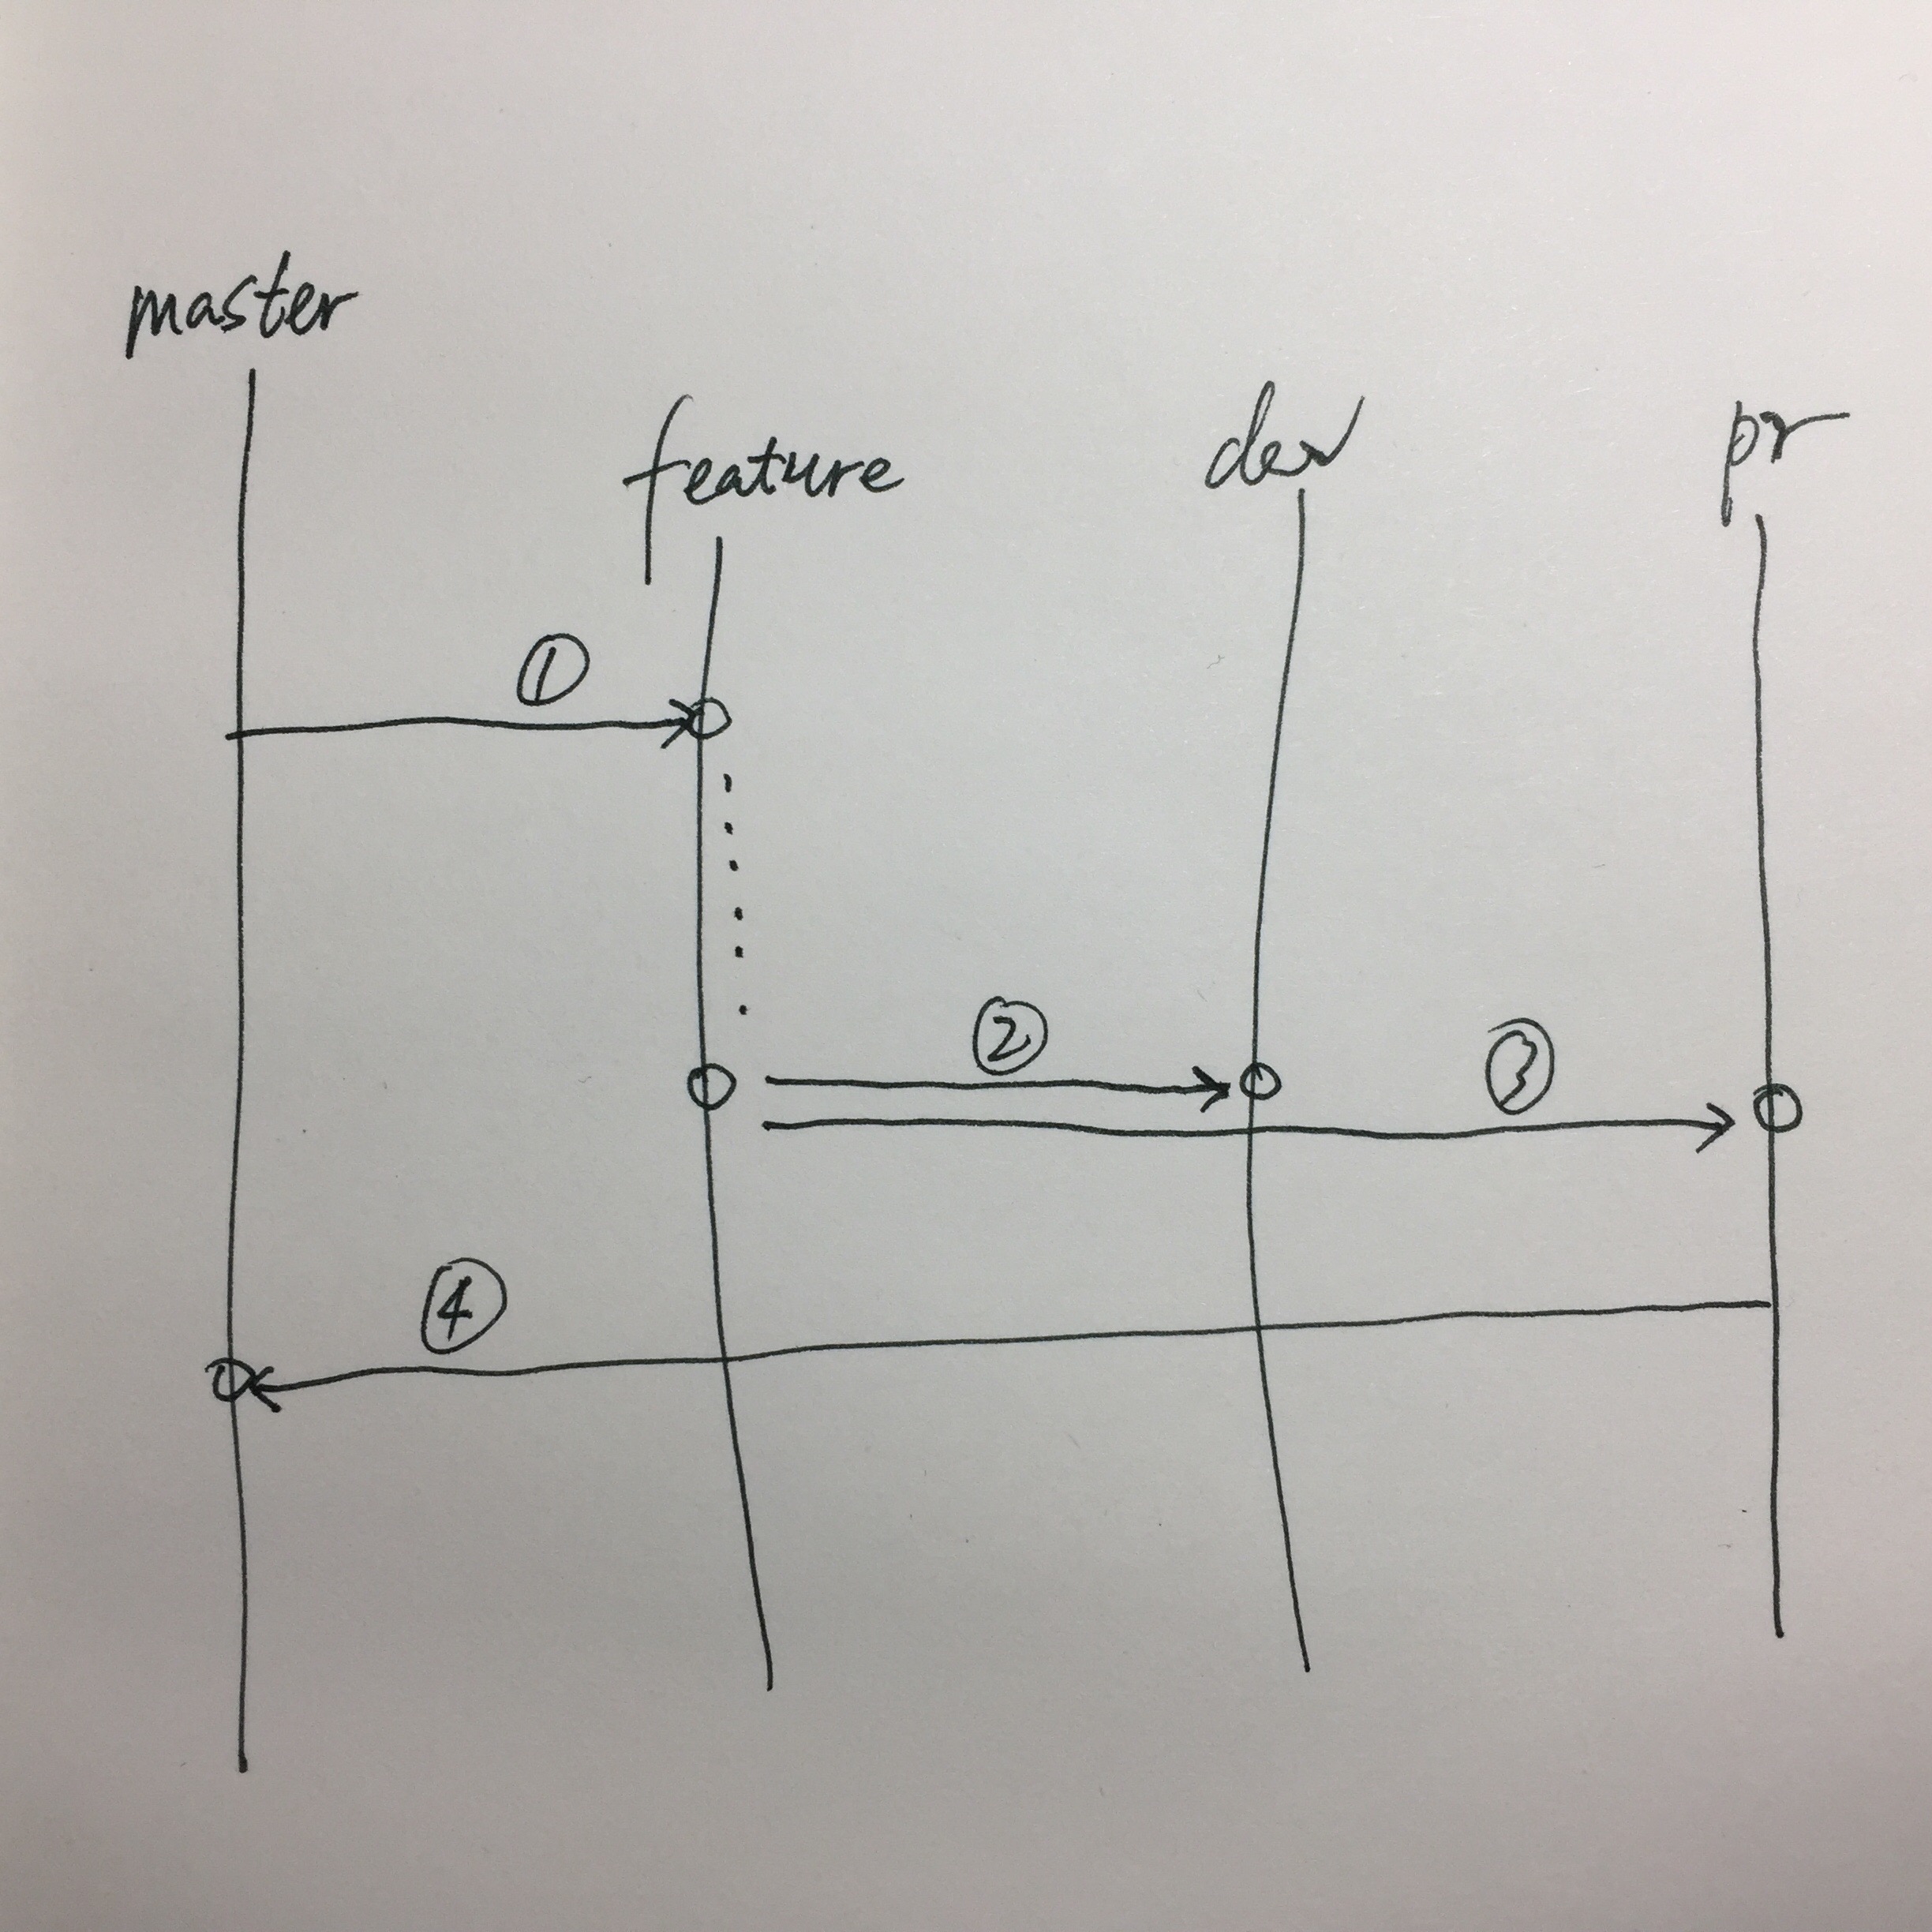 master
feature
dev
pr
①
②
③
④